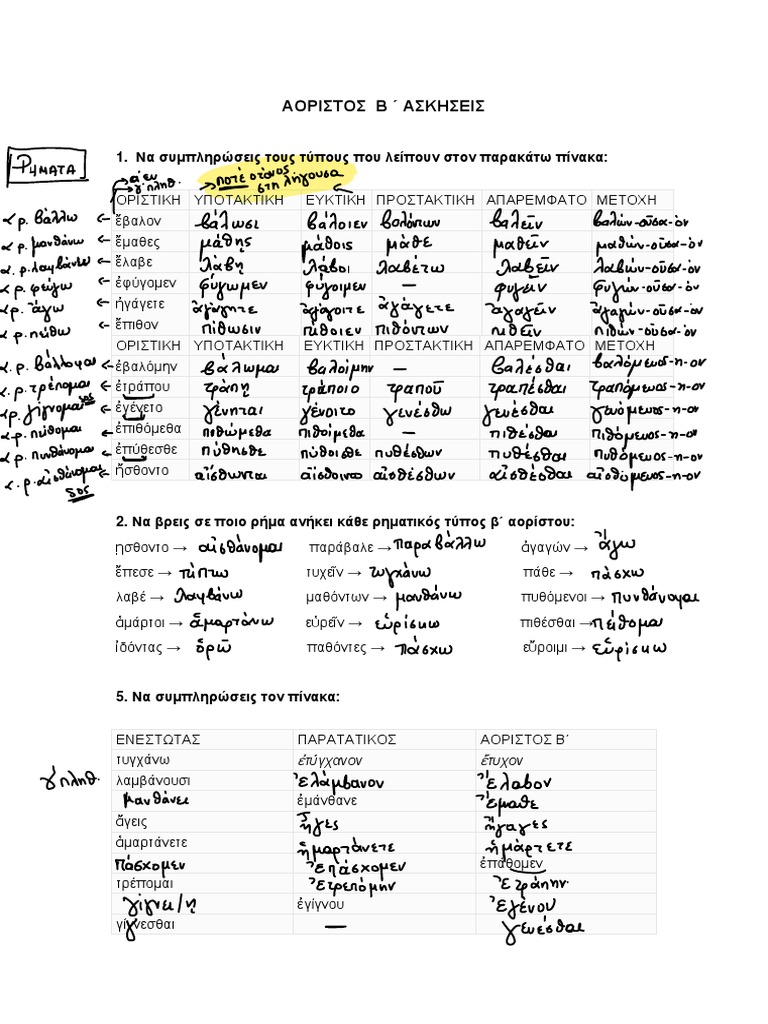 ΑΟΡΙΣΤΟΣ Β ΄ ΑΣΚΗΣΕΙΣ
ΡΗΜΑΤΑ
1. Να συμπληρώσεις τους τύπους που λείπουν στον παρακάτω πίνακα:
γ' πληθ. → ποτέ στόνος
στη λήγουσα
ΟΡΙΣΤΙΚΗ ΥΠΟΤΑΚΤΙΚΗ ΕΥΚΤΙΚΗ ΠΡΟΣΤΑΚΤΙΚΗ ΑΠΑΡΕΜΦΑΤΟ ΜΕΤΟΧΗ
ρ. βάλλω ← ἔβαλον βάλωσι βάλοιεν βαλόντων βαλεῖν βαλών-οῦσα-όν
α ρ. μανθάνω ← ἔμαθες μάθῃς μάθοις μάθε μαθεῖν μαθών-οῦσα-όν
α. ρ. λαμβάνω ← ἔλαβε λάβῃ λάβοι λαβέτω λαβεῖν λαβών-οῦσα-όν
ρ. φεύγω ← ἐφύγομεν φύγωμεν φύγοιμεν — φυγεῖν φυγών-οῦσα-όν
ρ. ἄγω ← ἠγάγετε ἀγάγητε ἀγάγοιτε ἀγάγετε ἀγαγεῖν ἀγαγών-οῦσα-όν
ρ. πείθω ← ἔπιθον πίθωσιν πίθοιεν πιθόντων πιθεῖν πιθών-οῦσα-όν
ΟΡΙΣΤΙΚΗ ΥΠΟΤΑΚΤΙΚΗ ΕΥΚΤΙΚΗ ΠΡΟΣΤΑΚΤΙΚΗ ΑΠΑΡΕΜΦΑΤΟ ΜΕΤΟΧΗ
α. ρ. βάλλομαι ← ἐβαλόμην βάλωμαι βαλοίμην — βαλέσθαι βαλόμενος-η-ον
α. ρ. τρέπομαι ← ἐτράπου τράπῃ τράποιο τραποῦ τραπέσθαι τραπόμενος-η-ον
ρ. γίγνομαι SOS ← ἐγένετο γένηται γένοιτο γενέσθω γενέσθαι γενόμενος-η-ον
α ρ. πείθομαι ← ἐπιθόμεθα πιθώμεθα πιθοίμεθα — πιθέσθαι πιθόμενος-η-ον
α. ρ. πυνθάνομαι ← ἐπύθεσθε πύθησθε πύθοισθε πυθέσθων πυθέσθαι πυθόμενος-η-ον
α. ρ. αἰσθάνομαι SOS ← ἤσθοντο αἴσθωνται αἴσθοιντο αἰσθέσθων αἰσθέσθαι αἰσθόμενος-η-ον
2. Να βρεις σε ποιο ρήμα ανήκει κάθε ρηματικός τύπος β΄ αορίστου:
ῃσθοντο → αἰσθάνομαι παράβαλε → παραβάλλω ἀγαγών → ἄγω
ἔπεσε → πίπτω τυχεῖν → τυγχάνω πάθε → πάσχω
λαβέ → λαμβάνω μαθόντων → μανθάνω πυθόμενοι → πυνθάνομαι
ἁμάρτοι → ἁμαρτάνω εὑρεῖν → εὑρίσκω πιθέσθαι → πείθομαι
ἰδόντας → ὁρῶ παθόντες → πάσχω εὕροιμι → εὑρίσκω
5. Να συμπληρώσεις τον πίνακα:
ΕΝΕΣΤΩΤΑΣ ΠΑΡΑΤΑΤΙΚΟΣ ΑΟΡΙΣΤΟΣ Β΄
τυγχάνω ἐτύγχανον ἔτυχον
γ' πληθ. λαμβάνουσι Ἐλάμβανον Ἔλαβον
μανθάνει ἐμάνθανε Ἔμαθε
ἄγεις ἦγες ἤγαγες
ἁμαρτάνετε ἡμαρτάνετε ἡμάρτετε
πάσχομεν Ἐπάσχομεν ἐπάθομεν
τρέπομαι Ἐτρεπόμην Ἐτράπην
γίγνει/ῃ ἐγίγνου Ἐγένου
γίγνεσθαι — γενέσθαι